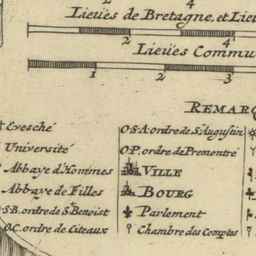 Lieües de Bretagne, et Lieü
2 4
Lieües Commu
1 2 3
REMARQ
Evesché
Université
Abbaye d'Hommes
Abbaye de Filles
S.B. ordre de S. Benoist
O.C. ordre de Citeaux
O.S.A. ordre de S. Augustin
O.P. ordre de Premontré
VILLE
BOURG
Parlement
Chambre des Comptes